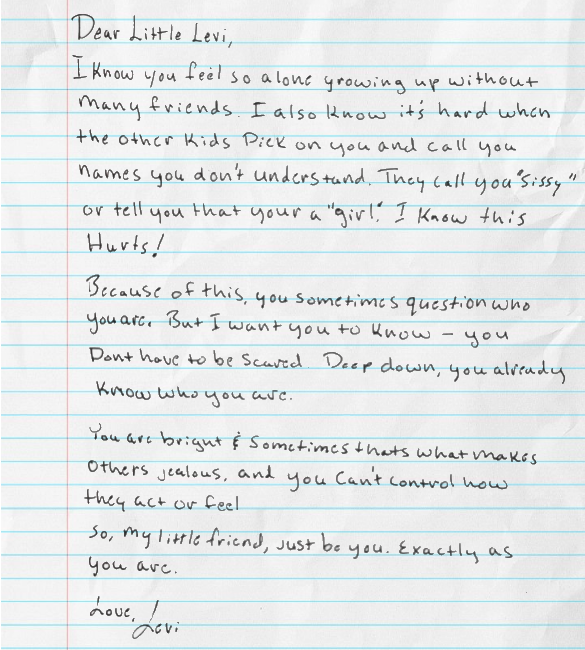 Dear Little Levi,
I Know you feel so alone growing up without
many friends. I also Know it's hard when
the other Kids Pick on you and call you
names you don't understand. They call you "sissy"
or tell you that your a "girl". I Know this
Hurts!
Because of this, you sometimes question who
you are. But I want you to Know – you
Dont have to be Scared. Deep down, you already
Know who you are.
You are bright & Sometimes thats what makes
others jealous, and you Can't control how
they act or feel
So, my little friend, just be you. Exactly as
you are.
Love,
Levi